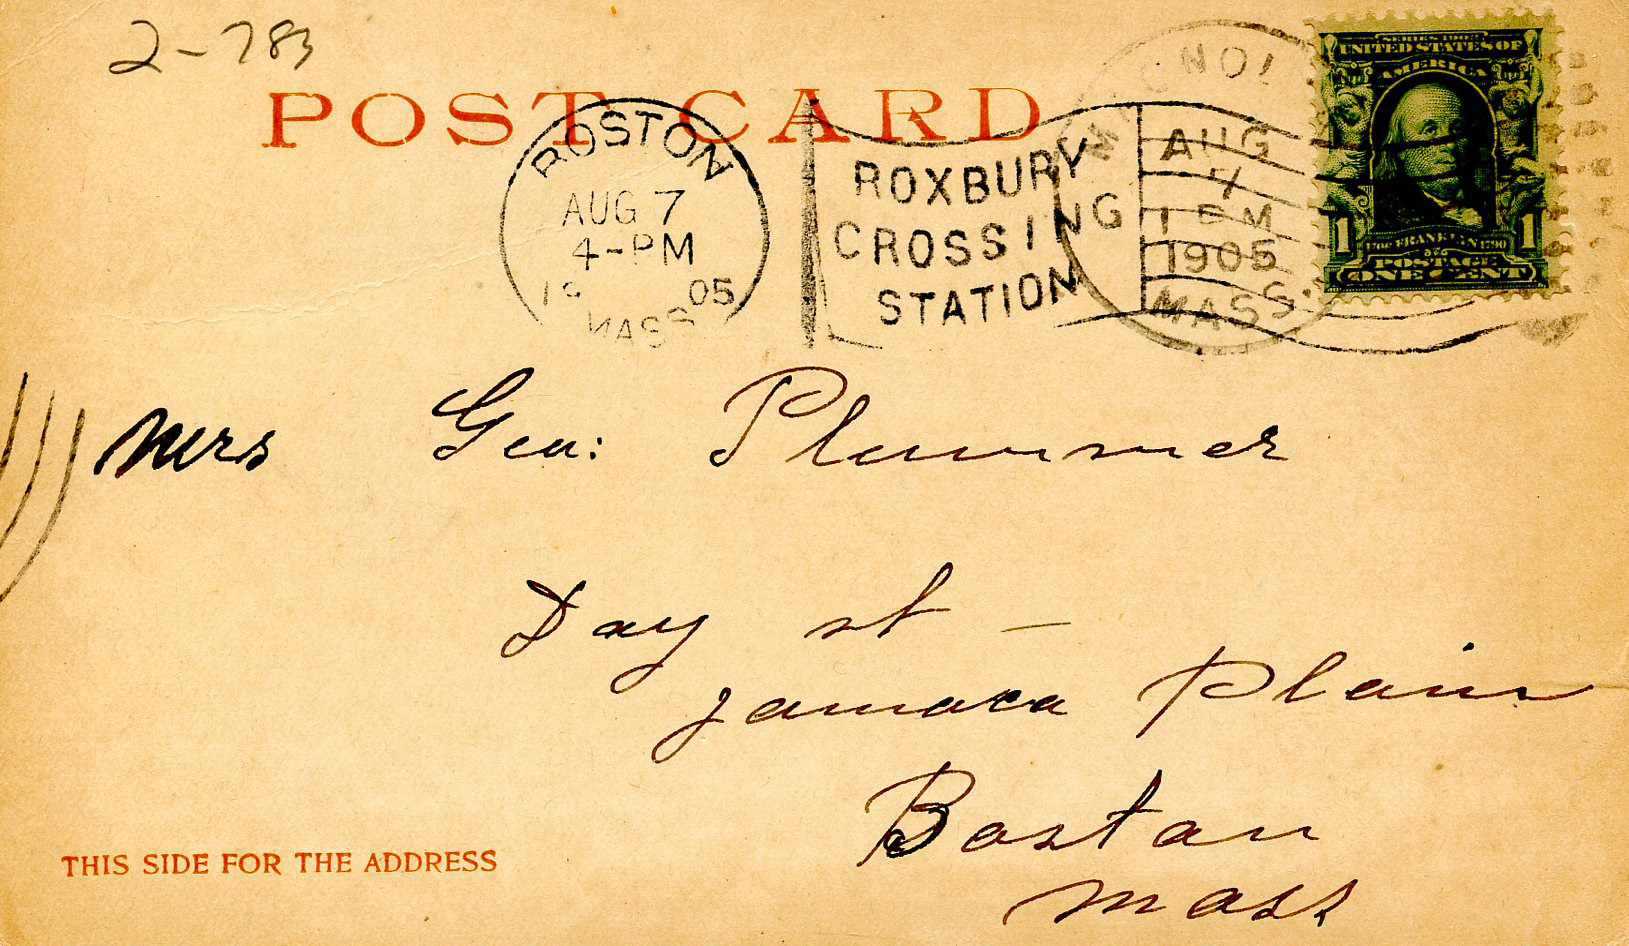 2-783
POST CARD
BOSTON
AUG 7
4-PM
05
MASS
ROXBURY
CROSSING
STATION
AUG
7
1 PM
1905
MASS.
SERIES 1902
UNITED STATES OF
AMERICA
1706 FRANKLIN 1790
1 POSTAGE 1
ONE CENT
Mrs Geo: Plummer
Day st —
Jamaca Plain
Boston
Mass
THIS SIDE FOR THE ADDRESS